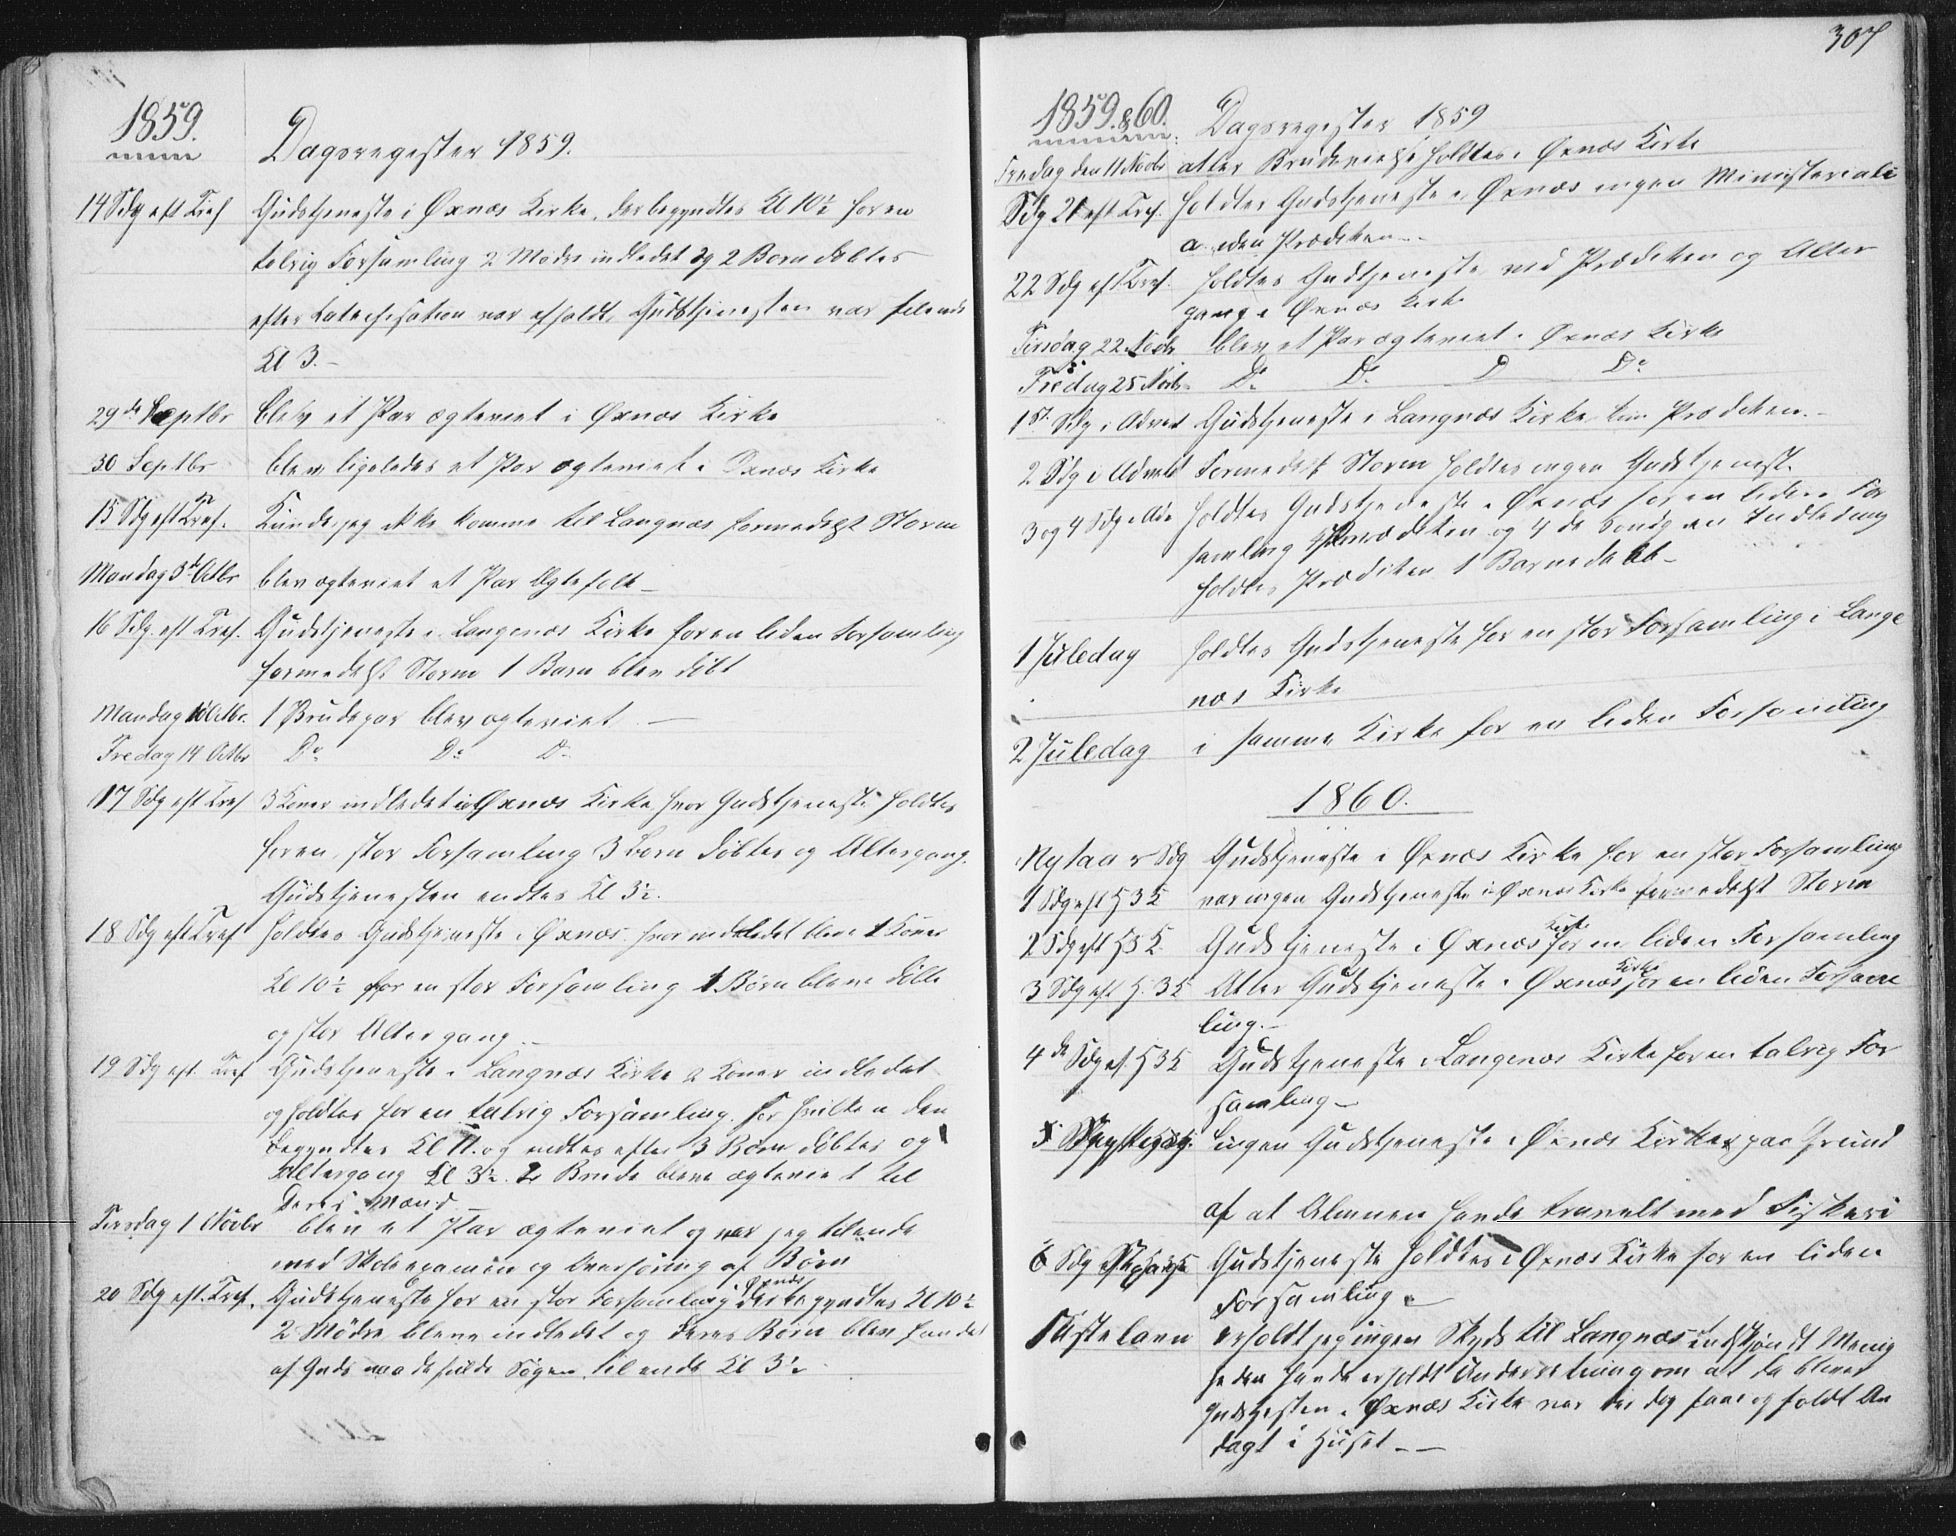 1859.
Dagsregister 1859.
14 Sdg eft Tref
Gudstjeneste i Øxnæs Kirke, der begyndtes Kl 10½ for en
talrig Forsamling 2 Mødre indledet og 2 Børn døbtes
efter Catechisation var afholdt. Gudstjenesten var tilende
Kl 3.-
29de Septbr blev et Par ægteviet i Øxnæs Kirke
30 Septbr blev ligeledes et Par ægteviet i Øxnæs Kirke
15 Sdg eft Tref. Kunde jeg ikke komme til Langnæs formedelst Storm
Mandag 3d Octbr blev ægteviet et Par Ægtefolk –
16 Sdg. eft Tref. Gudstjeneste i Langenæs Kirke for en liden Forsamling
formedelst Storm 1 Barn blev døbt
Mandag 10 Octbr. 1 Brudepar blev ægteviet –
Fredag 14 Octbr Do Do Do
17 Sdg eft Tref 3 Koner indledet i Øxnæs Kirke, hvor Gudstjeneste holdtes
for en stor Forsamling 3 Børn døbtes og Altergang.
Gudstjenesten endtes Kl 3½.
18 Sdg eft Tref holdtes Gudstjeneste i Øxnæs, hvor indledet blev 1 Koner
Kl 10½ for en stor Forsamling 1 Børn bleve døbte
og stor Altergang –
19 Sdg eft. Tref Gudstjeneste i Langnæs Kirke 2 Koner indledet
og holdtes for en talrig Forsamling, for hvilken den
begyndtes Kl 11. og endtes efter 3 Børn døbtes og
Altergang Kl 3½. 2 Brude bleve ægteviet til
Deres Mænd –
Tirsdag 1 Novbr blev et Par ægteviet og var jeg tilende
med Skoleexamen og Overhøring af Børn
20 Sdg eft. Tref. Gudstjeneste for en stor Forsamling i Øxnæs der begyndtes Kl 10½
2 Mødre bleve indledet og deres Børn blev
af Guds til ende Kl 3½
307
1859 & 60.
Dagsregister 1859
Fredag den 11 Novbr atter Brudevielse holdtes i Øxnæs Kirke
Sdg 21 eft Tref. holdtes Gudstjeneste i Øxnæs ingen Ministeriali
a. uden Prædiken –
22 Sdg eft Tref. holdtes Gudstjeneste med Prædiken og Alter
gang i Øxnæs Kirke
Tirsdag 22 Novbr blev et Par ægteviet i Øxnæs Kirke
Fredag 25 Novbr. Do Do D Do
1ste Sdg i Advent Gudstjeneste i Langnæs Kirke kun Prædiken. –
2 Sdg i Advent Formedelst Storm holdtes ingen Gudstjeneste.
3 og 4 Sdg i Adv holdtes Gudstjeneste i Øxnæs for en liden For
samling Prædiken og 4 de Søndg en Indledning
holdtes Prædiken 1 Barnedaab –
1 Juledag holdtes Gudstjeneste for en stor Forsamling i Lange
næs Kirke
2 Juledag i samme Kirke for en liden Forsamling
1860.
Nytaars Sdg Gudstjeneste i Øxnæs Kirke for en stor Forsamling
1 Sdg eft H3K var ingen Gudstjeneste i Øxnæs Kirke formedelst Storm
2 Sdg eft H3K Gudstjeneste i Øxnæs Kirke for en liden Forsamling
3 Sdg eft H.3K Atter Gudstjeneste i Øxnæs Kirke for en liden Forsam
ling. –
4de Sdg ef. H3K Gudstjeneste i Langenæs Kirke for en talrig For
samling –
5 ingen Gudstjeneste i Øxnæs Kirke paa Grund
af at Almuen havde travelt med Fiskeri
6 Sdg Gudstjeneste holdtes i Øxnæs Kirke for en liden
Forsamling. –
Fastelavn erholdt jeg ingen Skyds til Langnæs uagtet Menig
heden havde erholdt Underretning om at der bleven
i Øxnæs Kirke var der dog faae og holdt An
dagt i Huset – –